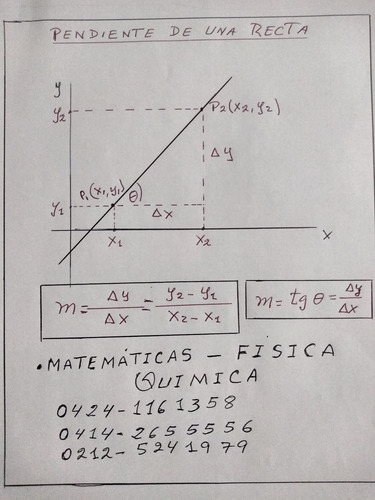 PENDIENTE DE UNA RECTA
y
y2
P2(x2,y2)
Δy
P1(x1,y1)
θ)
y1
Δx
x1
x2
x
m = Δy/Δx = y2 - y1/x2 - x1
m = tg θ = Δy/Δx
• MATEMÁTICAS - FISICA
QUIMICA
0424-1161358
0414-2655556
0212-5241979